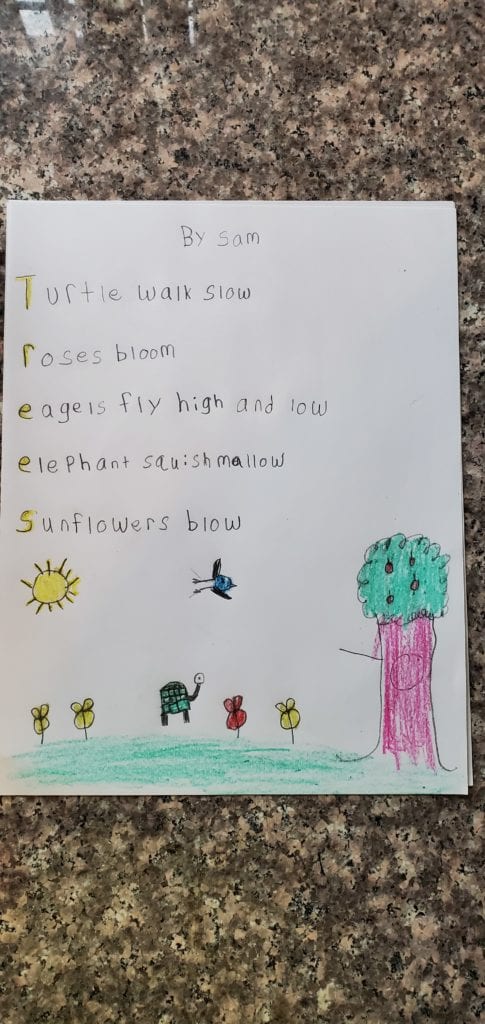 By Sam
Turtle walk slow
roses bloom
eagels fly high and low
elephant squishmallow
Sunflowers blow